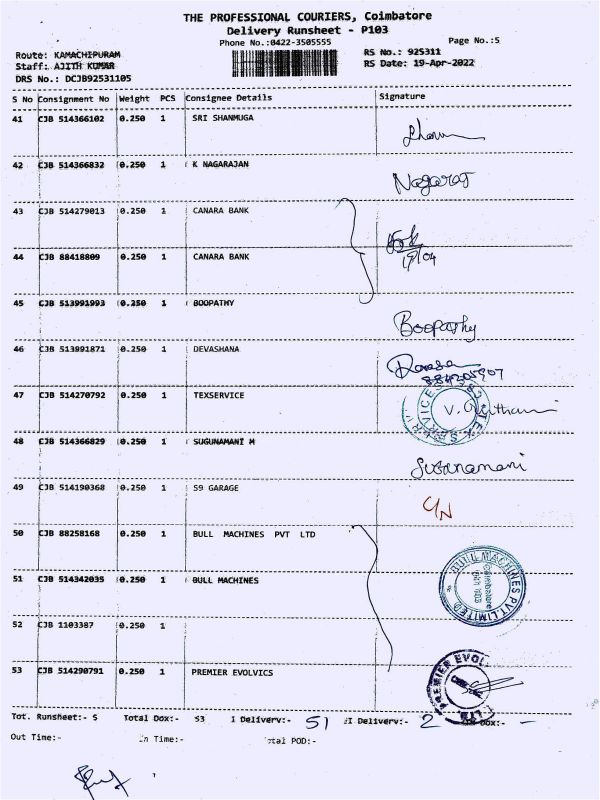 THE PROFESSIONAL COURIERS, Coimbatore
Delivery Runsheet - P103
Phone No.:0422-3505555
Page No.:5
Route: KAMACHIPURAM
RS No.: 925311
Staff: AJITH KUMAR
RS Date: 19-Apr-2022
DRS No.: DCJB92531105
S No Consignment No Weight PCS Consignee Details Signature
41 CJB 514366102 0.250 1 SRI SHANMUGA
42 CJB 514366832 0.250 1 K NAGARAJAN Nagaraj
43 CJB 514279013 0.250 1 CANARA BANK
19/04
44 CJB 88418809 0.250 1 CANARA BANK
45 CJB 513991993 0.250 1 BOOPATHY Boopathy
46 CJB 513991871 0.250 1 DEVASHANA
47 CJB 514270792 0.250 1 TEXSERVICE
48 CJB 514366829 0.250 1 SUGUNAMANI M Sugunamani
49 CJB 514190368 0.250 1 S9 GARAGE C/N
50 CJB 88258168 0.250 1 BULL MACHINES PVT LTD
BULL MACHINES PVT LIMITED
Coimbatore
51 CJB 514342035 0.250 1 BULL MACHINES
52 CJB 1103387 0.250 1
53 CJB 514290791 0.250 1 PREMIER EVOLVICS
Tot. Runsheet:- 5 Total Dox:- 53 I Delivery:- 51 II Delivery:- 2 Dox:- -
Out Time:- In Time:- Total POD:-